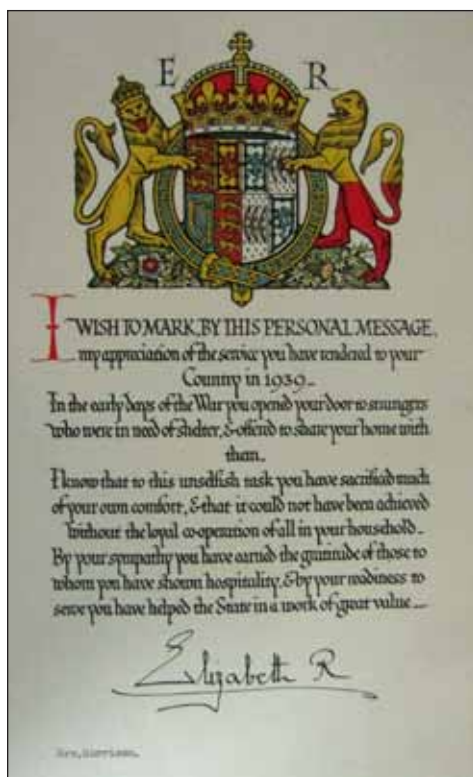 E R
I WISH TO MARK, BY THIS PERSONAL MESSAGE,
my appreciation of the service you have rendered to your
Country in 1939_
In the early days of the War you opened your door to strangers
who were in need of shelter, & offered to share your home with
them_
I know that to this unselfish task you have sacrificed much
of your own comfort, & that it could not have been achieved
without the loyal co-operation of all in your household_
By your sympathy you have earned the gratitude of those to
whom you have shown hospitality, & by your readiness to
serve you have helped the State in a work of great value_
Elizabeth R